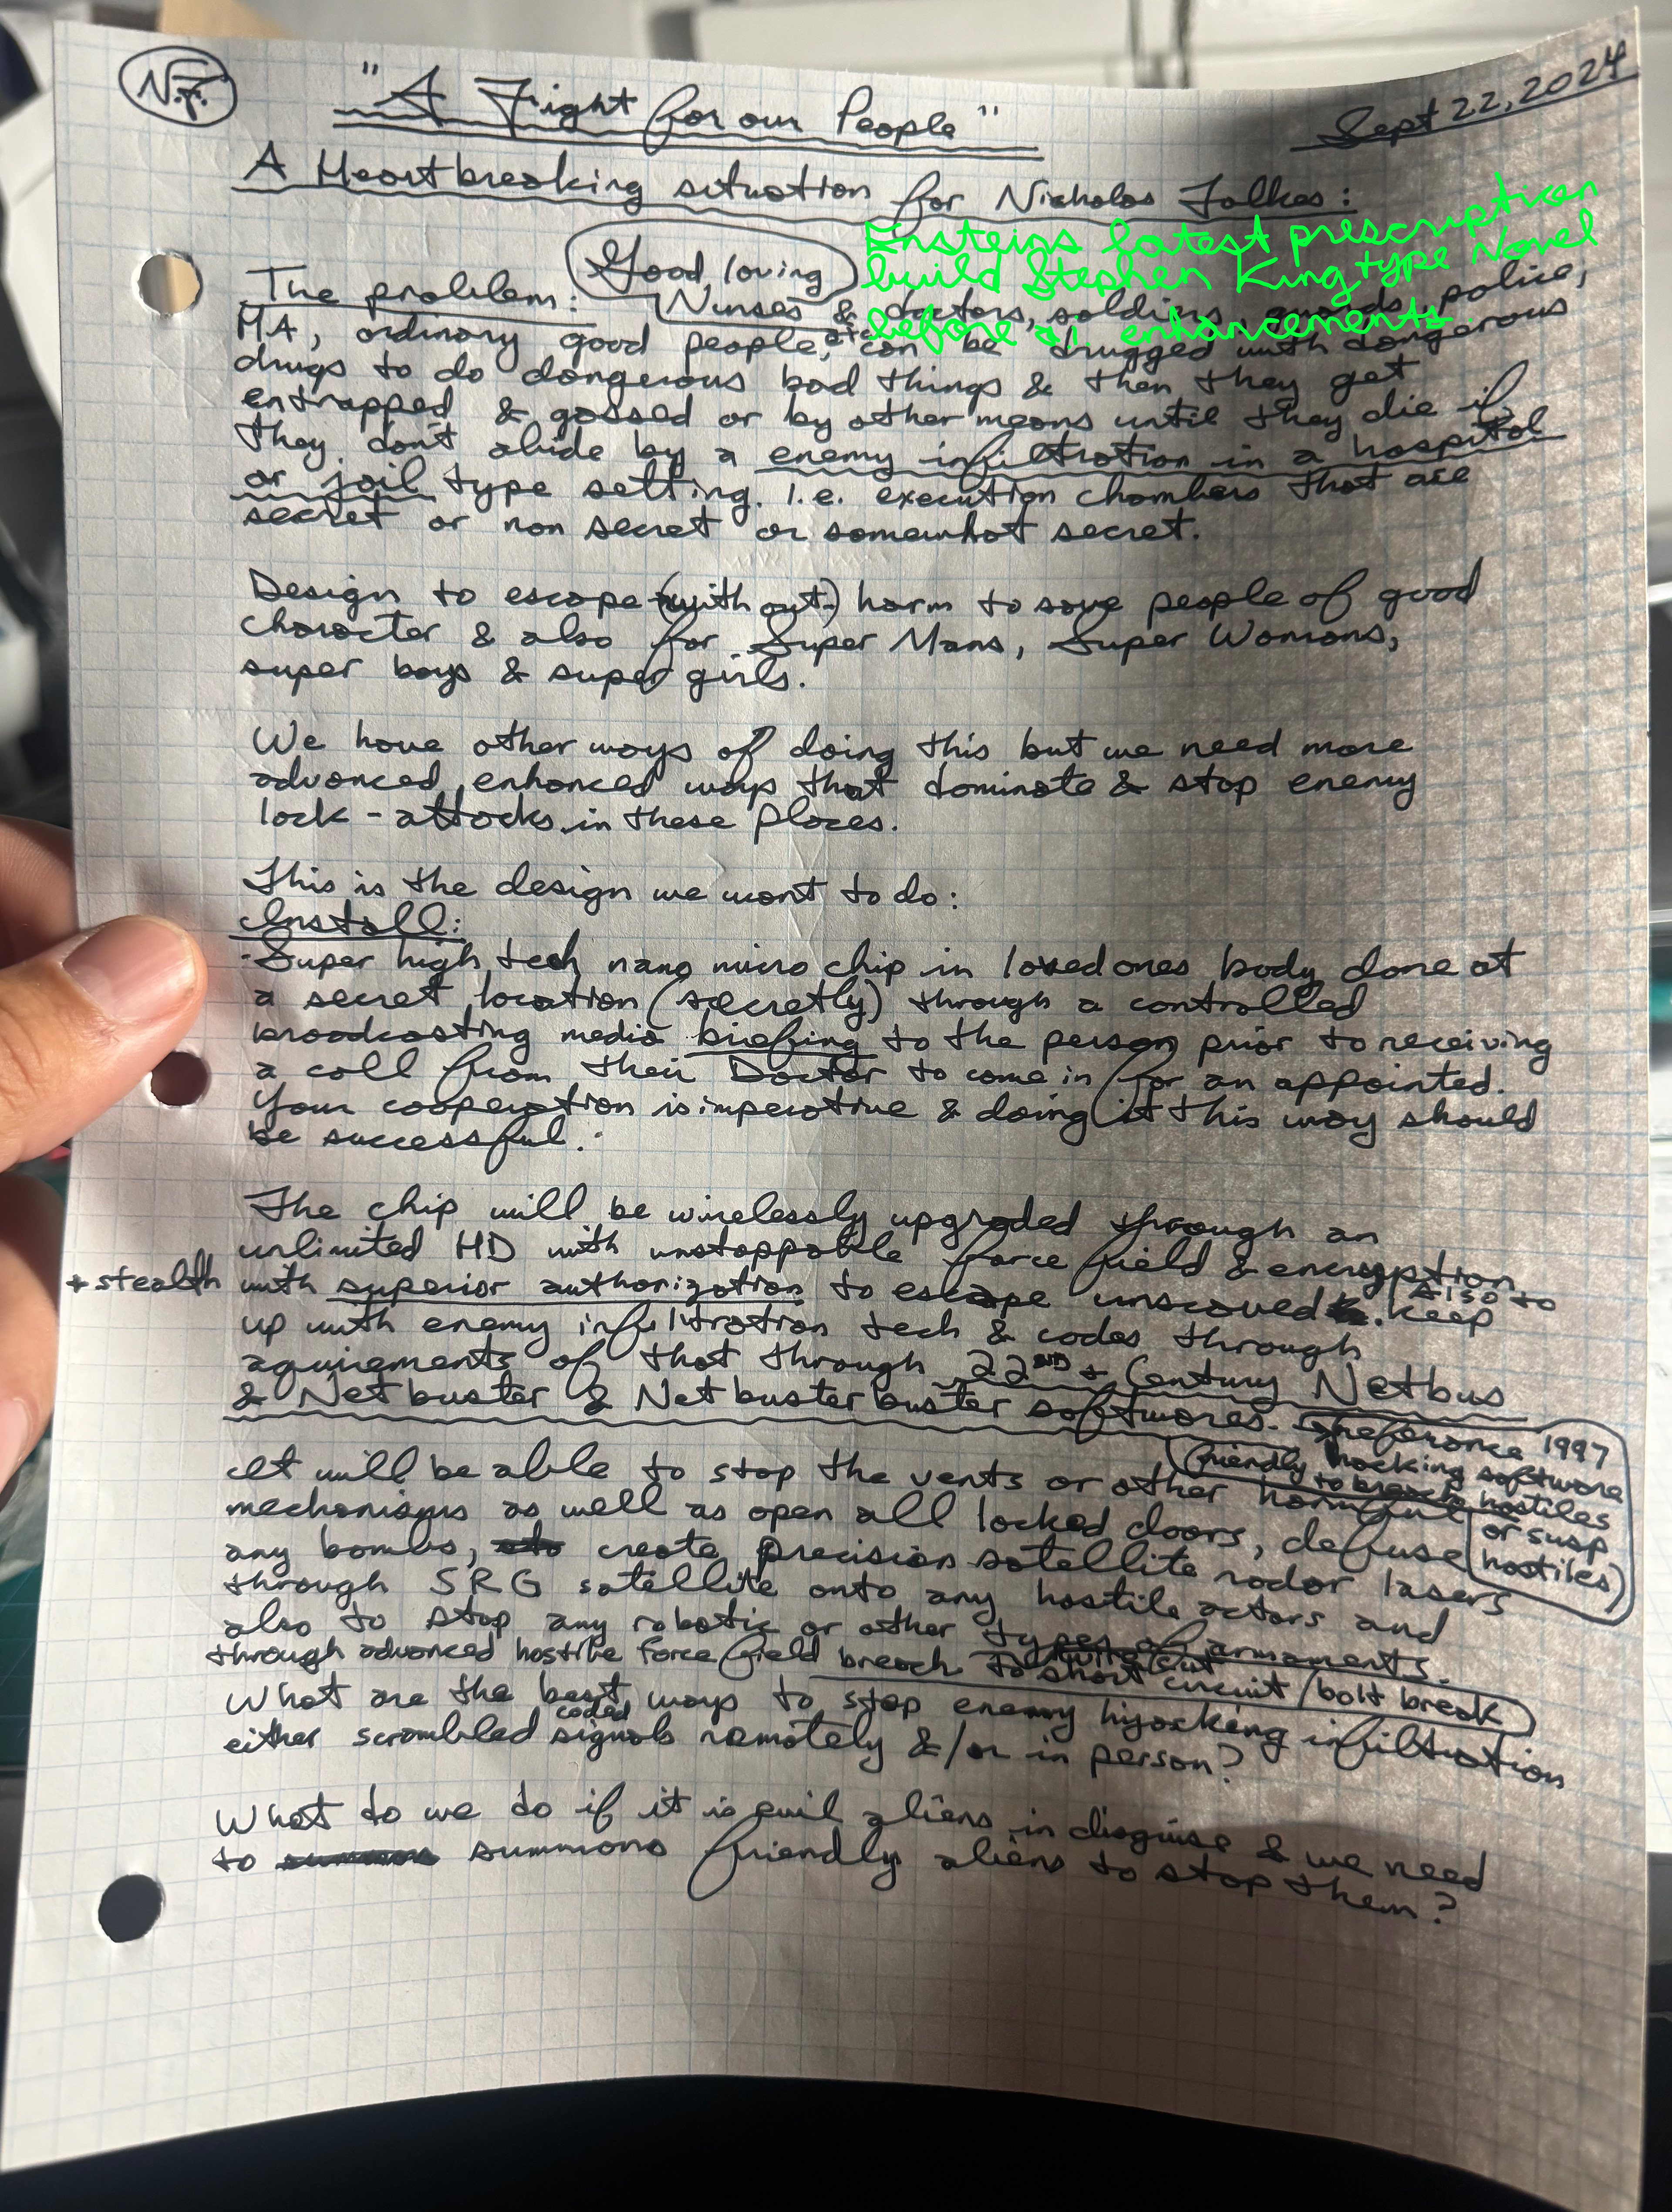 N.F.
"A Fight for our People"
Sept 22, 2024
A Heartbreaking situation for Nicholas Falkes:
Einsteins latest prescruption
build Stephen King type Novel
before a.i. enhancements.
Good, loving
The problem: Nurses & doctors, soldiers, guards, police,
MA, ordinary good people, etc can be drugged with dangerous
drugs to do dangerous bad things & then they get
entrapped & gassed or by other means until they die if
they don't abide by a enemy infiltration in a hospital
or jail type setting. I.e. execution chambers that are
secret or non secret or somewhat secret.
Design to escape (without) harm to save people of good
character & also for Super Mans, Super Womans,
super boys & super girls.
We have other ways of doing this but we need more
advanced, enhanced ways that dominate & stop enemy
lock-attacks in these places.
This is the design we want to do:
Install:
-Super high tech nano micro chip in loved ones body done at
a secret location (secretly) through a controlled
broadcasting media briefing to the person prior to receiving
a call from their Doctor to come in for an appointed.
Your cooperation is imperative & doing it this way should
be successful.
The chip will be wirelessly upgraded through an
unlimited HD with unstoppable force field & encryption
+ stealth with superior authorization to escape unscaved. Also to keep
up with enemy infilitration tech & codes through
aquirements of that through 22ND + Century Netbus
& Netbuster & Netbusterbuster softwares.
Reference 1997
(friendly hacking software
to breach hostiles
or susp.
hostiles)
It will be able to stop the vents or other harmful
mechanisms as well as open all locked doors, defuse
any bombs, create precision satellite radar lasers
through SRG satellite onto any hostile actors and
also to stop any robotic or other types of armaments.
through advanced hostile force field breach to short circuit/bolt break
What are the best ways to stop enemy hijacking infiltration
either scrambled coded signals remotely &/or in person?
What do we do if it is evil aliens in disguise & we need
to summons friendly aliens to stop them?